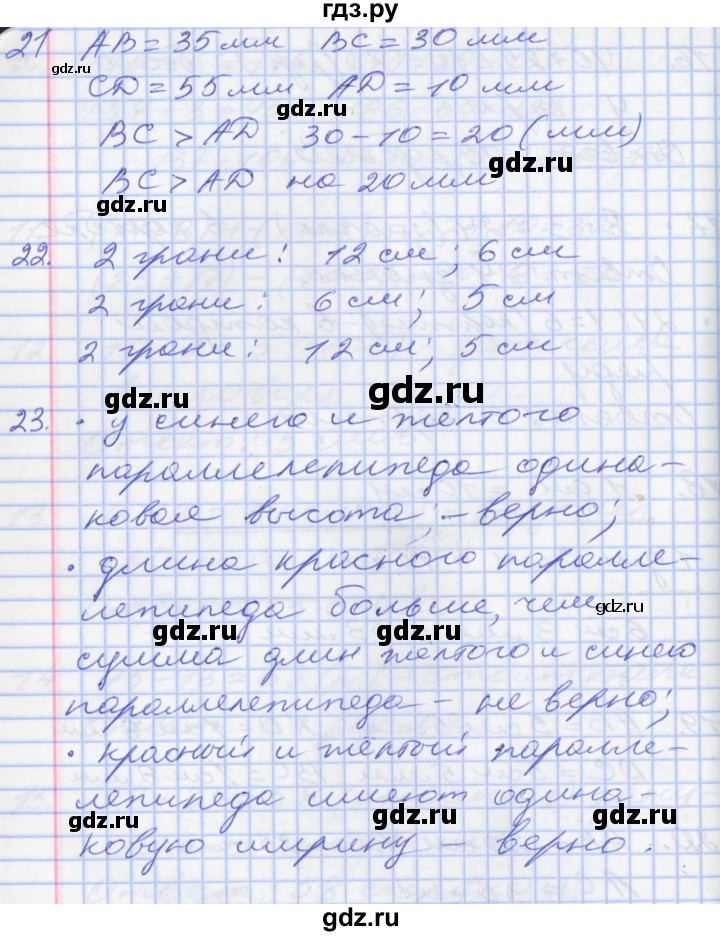 гдз.ру
21 AB = 35 мм BC = 30 мм
gdz.ru
CD = 55 мм AD = 10 мм
gdz.ru
BC > AD 30 - 10 = 20 (мм)
gdz.ru
BC > AD на 20 мм
gdz.ru
22. 2 грани: 12 см; 6 см
2 грани: 6 см; 5 см
2 грани: 12 см; 5 см
gdz.ru gdz.ru
23. • у синего и жёлтого
параллелепипеда одина-
ковая высота; - верно;
• длина красного паралле-
лепипеда больше, чем
gdz.ru
gdz.ru gdz.ru
сумма длин жёлтого и синего
параллелепипеда - не верно;
• красный и жёлтый паралле-
лепипеда имеют одина-
gdz.ru gdz.ru gdz.ru
ковую ширину - верно.
gdz.ru